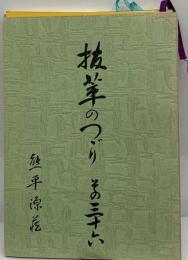 抜萃のつゞり その三十六
熊平源蔵